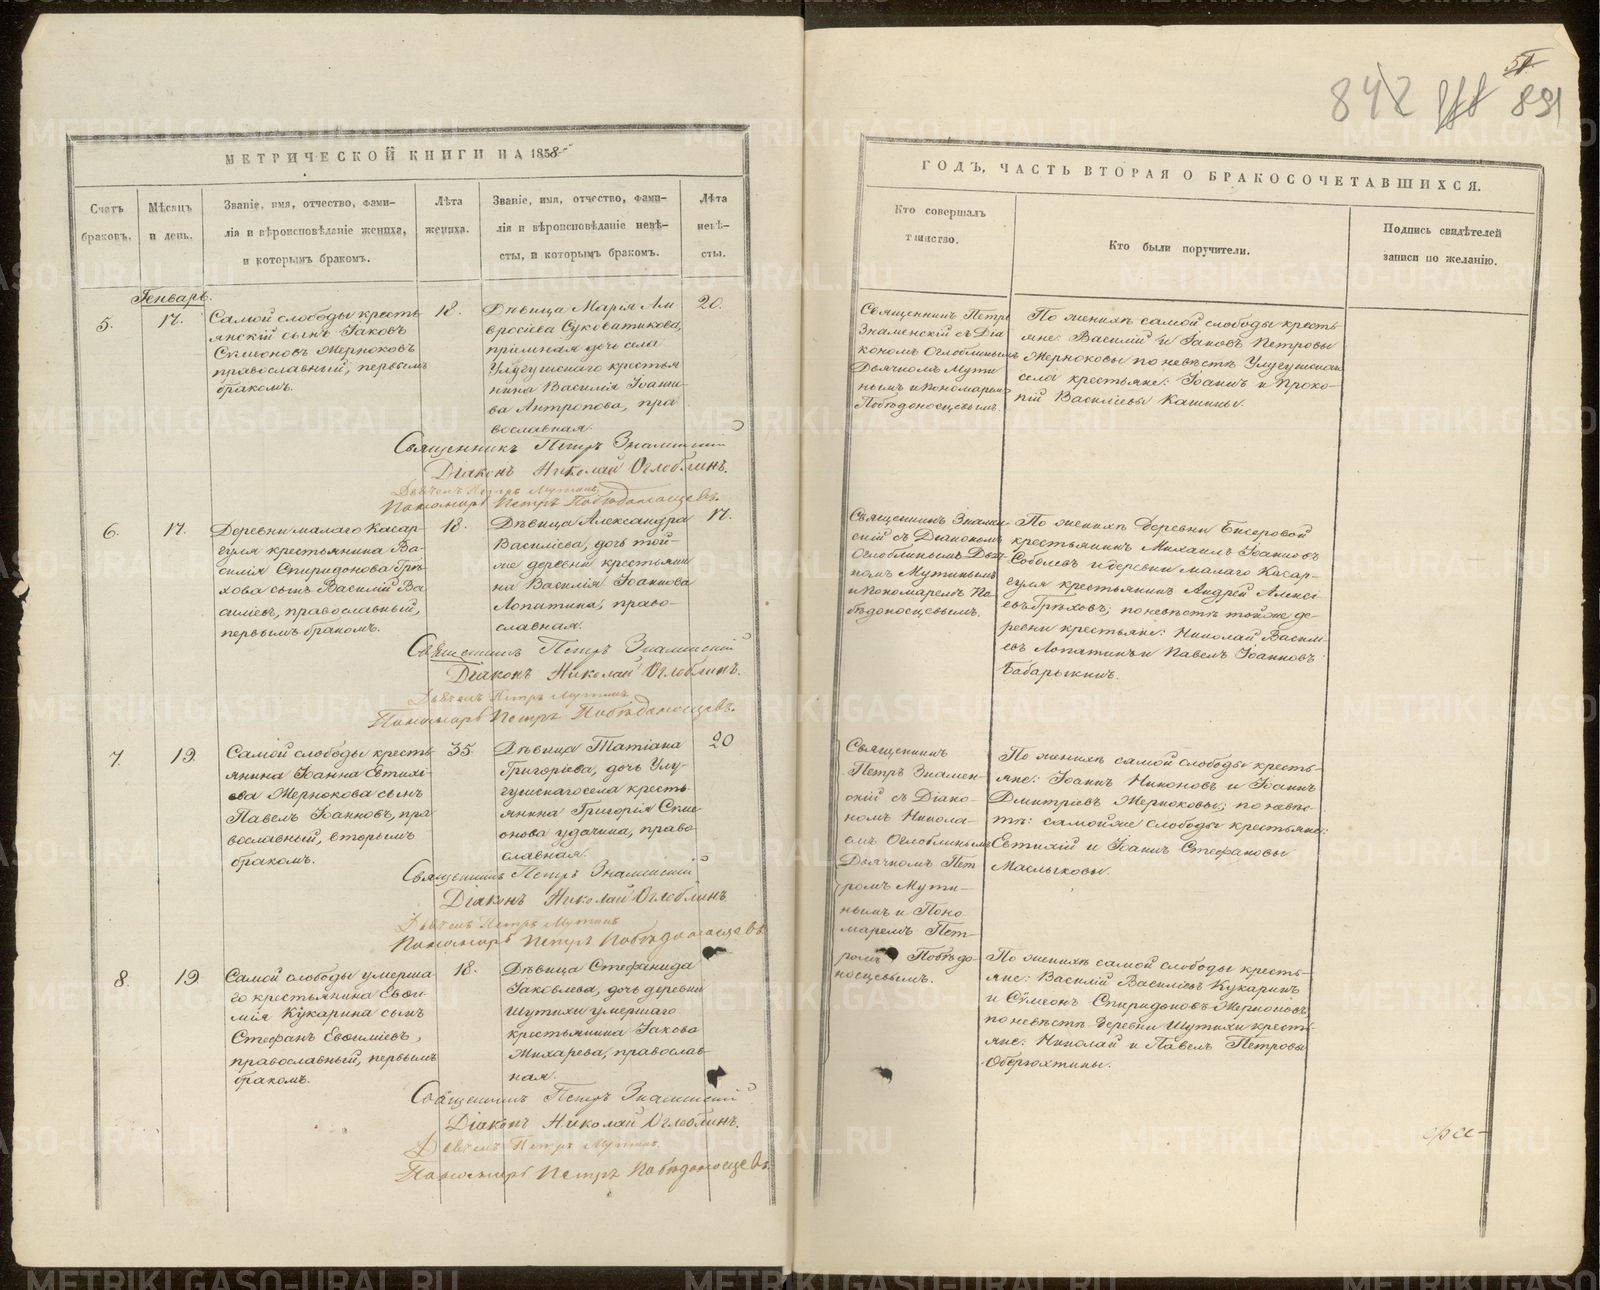 МЕТРИЧЕСКОЙ КНИГИ НА 1858
Счетъ
браковъ.
Мѣсяцъ
и день.
Званіе, имя, отчество, фами-
лія и вѣроисповѣданіе жениха,
и которымъ бракомъ.
Лѣта
жениха.
Званіе, имя, отчество, фами-
лія и вѣроисповѣданіе невѣ-
сты, и которымъ бракомъ.
Лѣта
невѣ-
сты.
Генварь.
5.
17.
Самой слободы кресть-
янскій сынъ Іаковъ
Симеоновъ Жерноковъ
православный, первымъ
бракомъ.
18.
Дѣвица Марія Ам-
вросіева Суковатикова,
пріемная дочь села
Улугушскаго крестья-
нина Василія Іоанно-
ва Антропова, пра-
вославная.
20.
Священникъ Петръ Знаменскій
Діаконъ Николай Оглоблинъ.
Дьячекъ Петръ Мутинъ.
Пономарь Петръ Побѣдоносцевъ.
6.
17.
Деревни малаго Касар-
гуля крестьянина Ва-
силія Спиридонова Грѣ-
хова сынъ Василій Ва-
силіевъ, православный,
первымъ бракомъ.
18.
Дѣвица Александра
Василіева, дочь той-
же деревни крестьяни-
на Василія Іоаннова
Лопатина, право-
славная.
17.
Священникъ Петръ Знаменскій
Діаконъ Николай Оглоблинъ.
Дьячекъ Петръ Мутинъ.
Пономарь Петръ Побѣдоносцевъ.
7.
19.
Самой слободы кресть-
янина Іоанна Евтихі-
ева Жернокова сынъ
Павелъ Іоанновъ, пра-
вославный, вторымъ
бракомъ.
35.
Дѣвица Татіана
Григоріева, дочь Улу-
гушскаго села кресть-
янина Григорія Симе-
онова Удачина, право-
славная.
20
Священникъ Петръ Знаменскій
Діаконъ Николай Оглоблинъ
Дьячекъ Петръ Мутинъ
Пономарь Петръ Побѣдоносцевъ.
8.
19.
Самой слободы умерша-
го крестьянина Евѳи-
мія Кукарина сынъ
Стефанъ Евѳиміевъ,
православный, первымъ
бракомъ.
18.
Дѣвица Стефанида
Іаковлева, дочь деревни
Шутихи умершаго
крестьянина Іакова
Жихарева, православ-
ная.
Священникъ Петръ Знаменскій
Діаконъ Николай Оглоблинъ.
Дьячекъ Петръ Мутинъ.
Пономарь Петръ Побѣдоносцевъ.
842
891
ГОДЪ, ЧАСТЬ ВТОРАЯ О БРАКОСОЧЕТАВШИХСЯ.
Кто совершалъ
таинство.
Кто были поручители.
Подпись свидѣтелей
записи по желанію.
Священникъ Петръ
Знаменскій съ Діа-
кономъ Оглоблинымъ
Дьячкомъ Мути-
нымъ и Пономаремъ
Побѣдоносцевымъ.
По женихѣ самой слободы кресть-
яне: Василій и Іаковъ Петровы
Жерноковы, по невѣстѣ Улугушскаго
села крестьяне: Іоаннъ и Проко-
пій Василіевы Кашины.
Священникъ Знамен-
скій съ Діакономъ
Оглоблинымъ Дьяч-
комъ Мутинымъ
и Пономаремъ По-
бѣдоносцевымъ.
По женихѣ деревни Бисеровой
крестьянинъ Михаилъ Іоанновъ
Соболевъ и деревни малаго Касар-
гуля крестьянинъ Андрей Алексі-
евъ Грѣховъ; по невѣстѣ тойже де-
ревни крестьяне: Николай Васили-
евъ Лопатинъ и Павелъ Іоанновъ
Бабарыкинъ.
Священникъ
Петръ Знамен-
скій съ Діако-
номъ Никола-
емъ Оглоблинымъ
Дьячкомъ Пет-
ромъ Мути-
нымъ и Поно-
маремъ Пет-
ромъ Побѣдо-
носцевымъ.
По женихѣ самой слободы кресть-
яне: Іоаннъ Никоновъ и Іоаннъ
Дмитріевъ Жерноковы; по невѣс-
тѣ: самойже слободы крестьяне:
Евтихій и Іоаннъ Стефановы
Маслыковы.
По женихѣ самой слободы кресть-
яне: Василій Василіевъ Кукаринъ
и Сѵмеонъ Спиридоновъ Жерноковъ,
по невѣстѣ деревни Шутихи кресть-
яне: Николай и Павелъ Петровы
Обергохтины.
METRIKI.GASO-URAL.RU